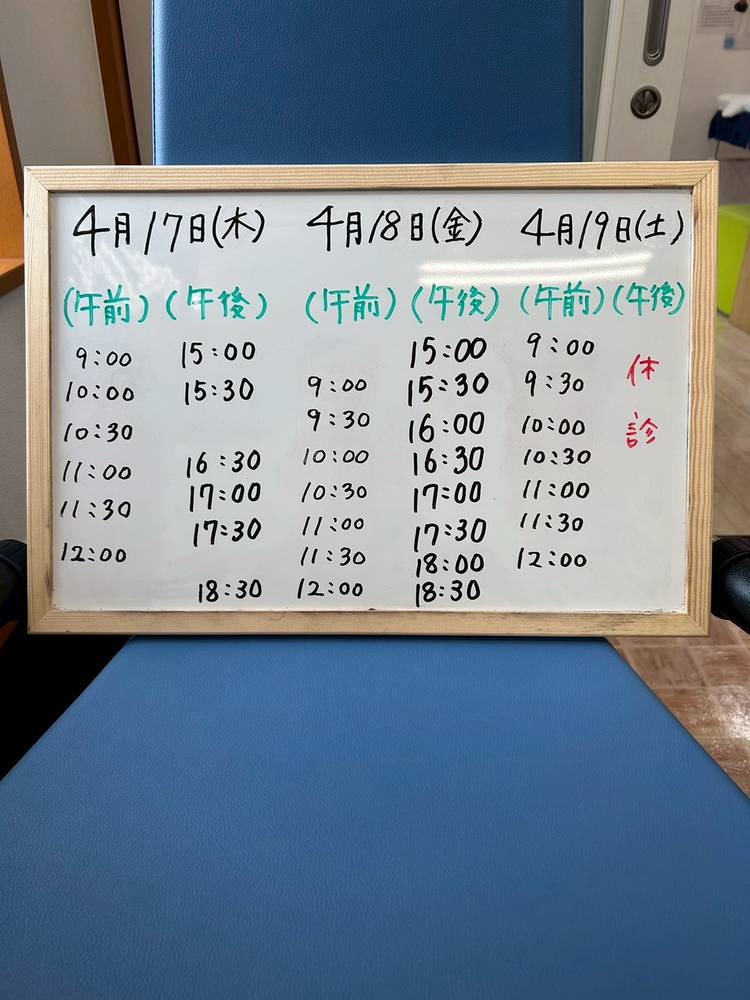 4月17日(木) 4月18日(金) 4月19日(土)
(午前) (午後) (午前) (午後) (午前) (午後)
9:00 15:00 15:00 9:00 休
10:00 15:30 9:00 15:30 9:30
10:30 9:30 16:00 10:00 診
11:00 16:30 10:00 16:30 10:30
11:30 17:00 10:30 17:00 11:00
17:30 11:00 17:30 11:30
12:00 11:30 18:00 12:00
18:30 12:00 18:30